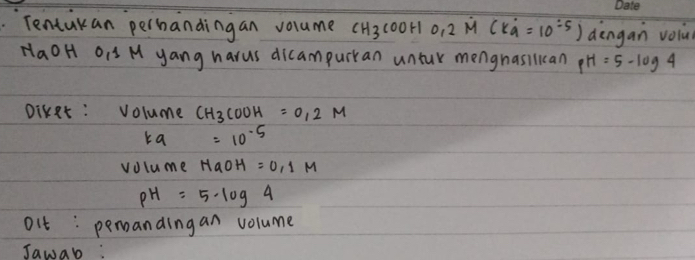 Date
. Tentukan perbandingan volume CH3COOH 0,2 M (Ka = 10^-5) dengan
NaOH 0,1 M yang harus dicampurkan untuk menghasilkan pH = 5 - log 4
Diket : Volume CH3COOH = 0,2 M
ka = 10^-5
volume NaOH = 0,1 M
pH = 5 - log 4
Dit : perbandingan volume
Jawab :